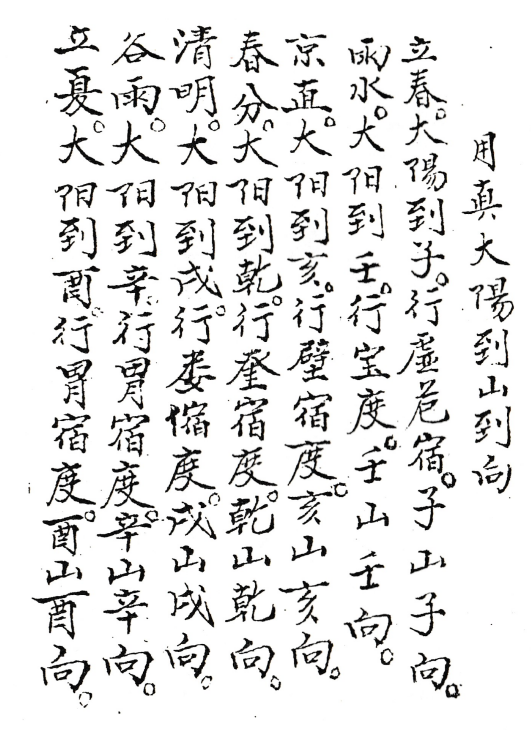 用真大陽到山到向
立春。大陽到子。行虛危宿。子山子向。
雨水。大阳到壬。行室度。壬山壬向。
京直。大阳到亥。行壁宿度。亥山亥向。
春分。大阳到乾。行奎宿度。乾山乾向。
清明。大阳到戌。行娄宿度。戌山戌向。
谷雨。大阳到辛。行胃宿度。辛山辛向。
立夏。大阳到酉。行胃宿度。酉山酉向。